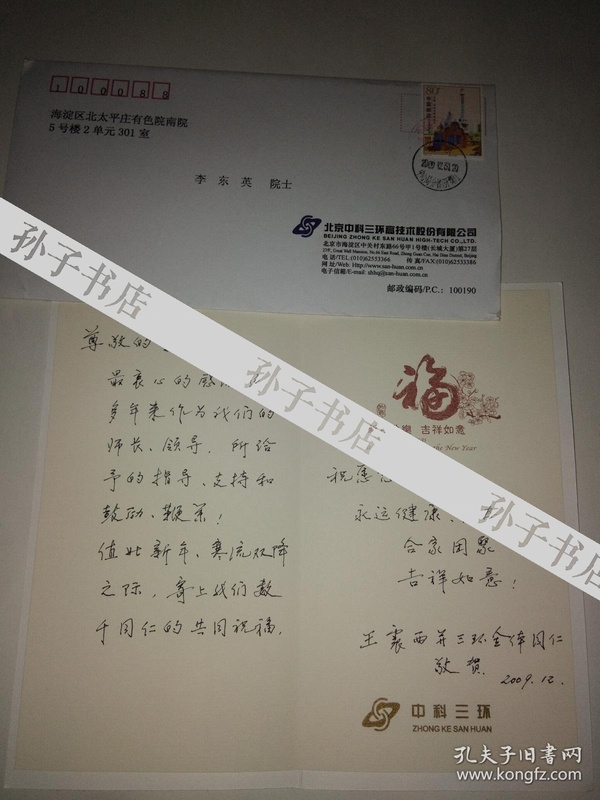 100088
海淀区北太平庄有色院南院
5号楼2单元301室
李东英 院士
80
北京中科三环高技术股份有限公司
BEIJING ZHONG KE SAN HUAN HIGH-TECH CO.,LTD.
北京市海淀区中关村东路66号甲1号楼(长城大厦)第27层
电话/TEL:(010)62553366 传真/FAX:(010)62533386
网址/Web: Http://www.san-huan.com.cn
电子信箱/E-mail: zhhq@san-huan.com.cn
邮政编码/P.C.: 100190
尊敬的
最衷心的感
多年来作为我们的
师长、领导、所给
予的指导、支持和
鼓励、鞭策!
值此新年、寒流双降
之际,寄上我们数
千同仁的共同祝福.
福
吉祥如意
the New Year
祝愿
永远健康
合家团聚
吉祥如意!
王震西并三环全体同仁
敬贺
2009.12.
中科三环
ZHONG KE SAN HUAN
孙子书店
孙子书店
孙子书店
孙子书店
孔夫子旧书网
www.kongfz.com